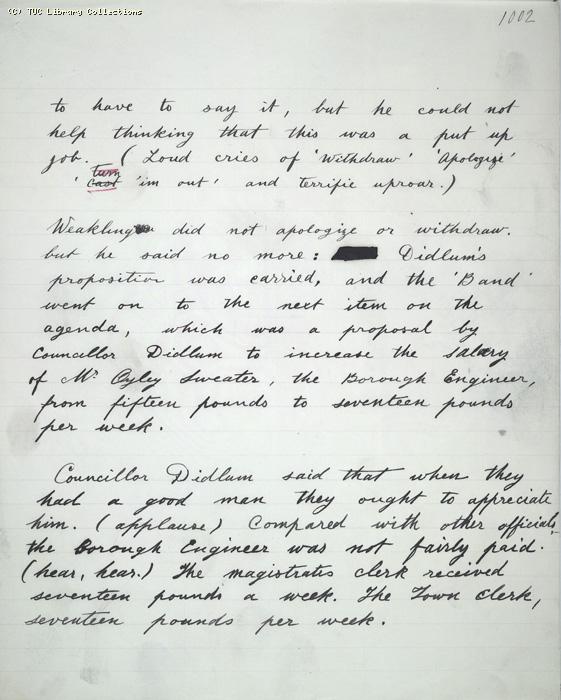 (C) TUC Library Collections
1002
to have to say it, but he could not
help thinking that this was a put up
job. (Loud cries of 'Withdraw' 'Apologize'
' turn
cast 'im out' and terrific uproar.)
Weakling did not apologize or withdraw.
but he said no more: Didlum's
proposition was carried, and the 'Band'
went on to the next item on the
agenda, which was a proposal by
Councillor Didlum to increase the salary
of Mr Oyley Sweater, the Borough Engineer,
from fifteen pounds to seventeen pounds
per week.
Councillor Didlum said that when they
had a good man they ought to appreciate
him. (applause) Compared with other officials,
the Borough Engineer was not fairly paid.
(hear, hear.) The magistrates clerk received
seventeen pounds a week. The Town Clerk,
seventeen pounds per week.